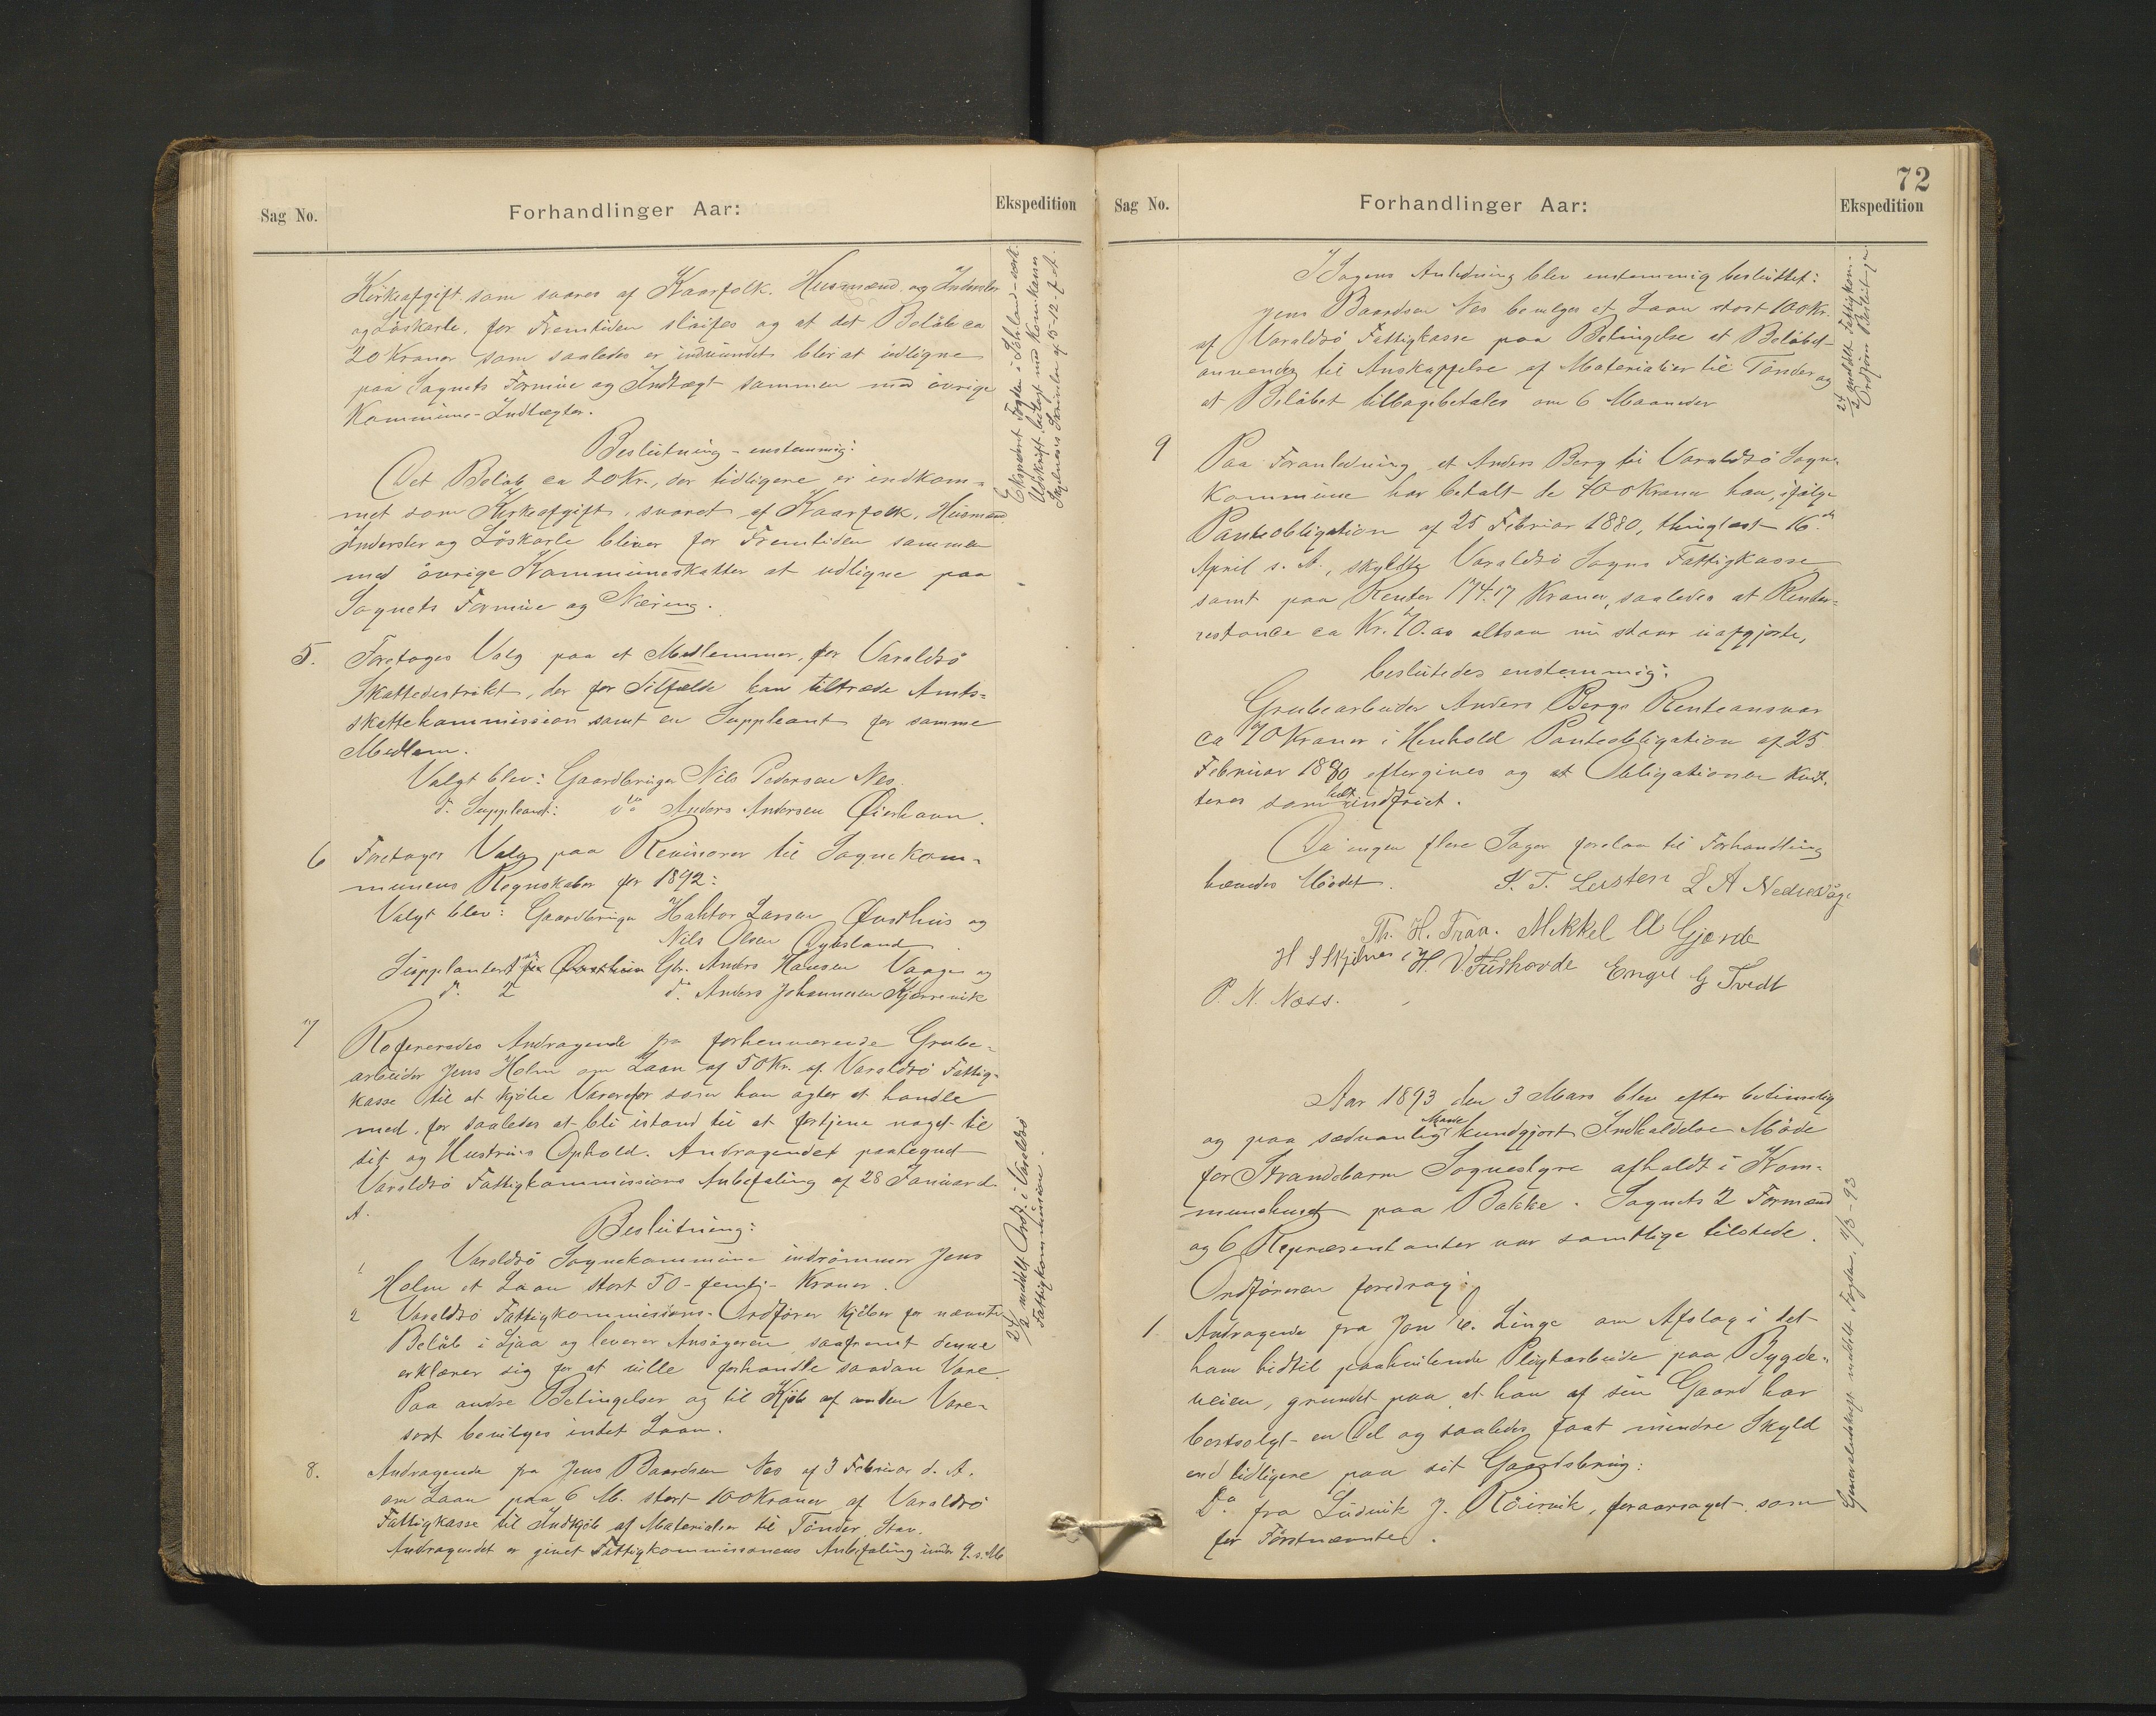 Sag No.
Forhandlinger Aar:
Ekspedition
Kirkeafgift som svares af Kaarfolk. Husmænd og Inderster
og Löskarle, for Fremtiden slöifes og at det Belöb ca
20 Kroner som saaledes er indvundet blir at udligne
paa Sognets Formue og Indtægt sammen med övrige
Kommune-Indtægter.
Beslutning - enstemmig:
Det Belöb ca 20 Kr., der tidligere er indkom-
met som Kirkeafgift, svaret af Kaarfolk, Husmænd
Inderster og Löskarle bliver for Fremtiden sammen
med övrige Kommuneskatter at udligne paa
Sognets Formue og Næring.
5. Foretages Valg paa et Medlemmer for Varaldsö
Skattedistrikt, der for Tilfælde kan tiltræde Amts-
skattekommission samt en Suppleant for samme
Medlem.
Valgt blev: Gaardbruger Nils Pedersen Nes
d. Suppleant: do Anders Andersen Øierhavn.
6 Foretages Valg paa Revisorer til Sognekom-
munens Regnskaber for 1892:
Valgt blev: Gaardbruger Haktor Larsen Øvsthus og
Nils Olsen Opsland
Suppleanter Gbr. Anders Hansen Vaage og
d. 2 do. Anders Johannesen Kjerrevik
7 Refereredes Andragende fra forhenværende Grube-
arbeider Jens Holm om Laan af 50 Kr. af Varaldsö Fattig-
kasse til at kjöbe Varer for som han agter at handle
med, for saaledes at bli istand til at fortjene noget til
sit og Hustrues Ophold. Andragendet paategnet
Varaldsö Fattigkommissions Anbefaling af 28 Januar d.
A.
Beslutning:
1 Varaldsö Sognekommune indrömmer Jens
Holm et Laan stort 50 - femti - Kroner.
2 Varaldsö Fattigkommissions-Ordförer kjöber for nævnte
Belöb i Ljaa og leverer Ansögeren saafremt denne
erklærer sig for at ville forhandle saadan Vare.
Paa andre Betingelser og til Kjöb af anden Vare-
sort bevilges intet Laan.
8. Andragende fra Jens Baardsen Nes af 3 Februar d. A.
om Laan paa 6 M. stort 100 Kroner af Varaldsö
Fattigkasse til Indkjöb af Materialier til Tönder, Stav.
Andragendet er givet Fattigkommissionens Anbefaling under 9. s. M
Ekspederet Fogden i
Udskrift bilagt med
24/2 meddelt Ordf. i Varaldsö
Fattigkommission.
72
Sag No.
Forhandlinger Aar:
Ekspedition
I Sagens Anledning blev enstemmig besluttet:
Jens Baardsen Nes bevilges et Laan stort 100 Kr.
af Varaldsö Fattigkasse paa Betingelse at Belöbet
anvendes til Anskaffelse af Materialier til Tönder og
at Belöbet tilbagebetales om 6 Maaneder
24/2 meddelt Fattigkom.-
Ordförn Beslutn
9 Paa Foranledning at Anders Berg til Varaldsö Sogne-
kommune har betalt de 400 Kroner han, ifölge
Panteobligation af 25 Februar 1880, thinglæst 16de
April s. A., skyldte Varaldsö Sogns Fattigkasse
samt paa Renter 174.17 Kroner, saaledes at Rente-
restance ca Kr. 70.00 altsaa nu staar uafgjorte,
besluttedes enstemmig:
Grubearbeider Anders Bergs Renteansvar
ca 70 Kroner i Henhold Panteobligation af 25
Februar 1880 eftergives og at Obligationen kvit-
teres som helt indfriet.
Da ingen flere Sager forelaa til Forhandling
hævedes Mödet.
S. T. Lersten L A Nedrevåge
Th. H. Traa. Mikkel A Gjerde
H S Skjelnes H. V. Fuskovde Engel G Tvedt
P. N. Næss.
Aar 1893 den 3 Mars blev efter betimelig
og paa sædvanlig Maade kundgjort Indkaldelse Möde
for Strandebarm Sognestyre afholdt i Kom-
munehuset paa Bakke. Sognets 2 Formænd
og 6 Repræsentanter var samtlige tilstede.
Ordföreren foredrog:
1. Andragende fra Jon E. Linge om Afslag i det
ham hidtil paahvilende Pligtarbeide paa Bygde-
veien, grundet paa at han af sin Gaard har
bortsolgt en Del og saaledes faat mindre Skyld
end tidligere paa sit Gaardsbrug:
Do. fra Ludvik J. Röirvik, foraarsaget som
for Förstnævnte.
Generaludskrift meddelt Fogden 4/3-93